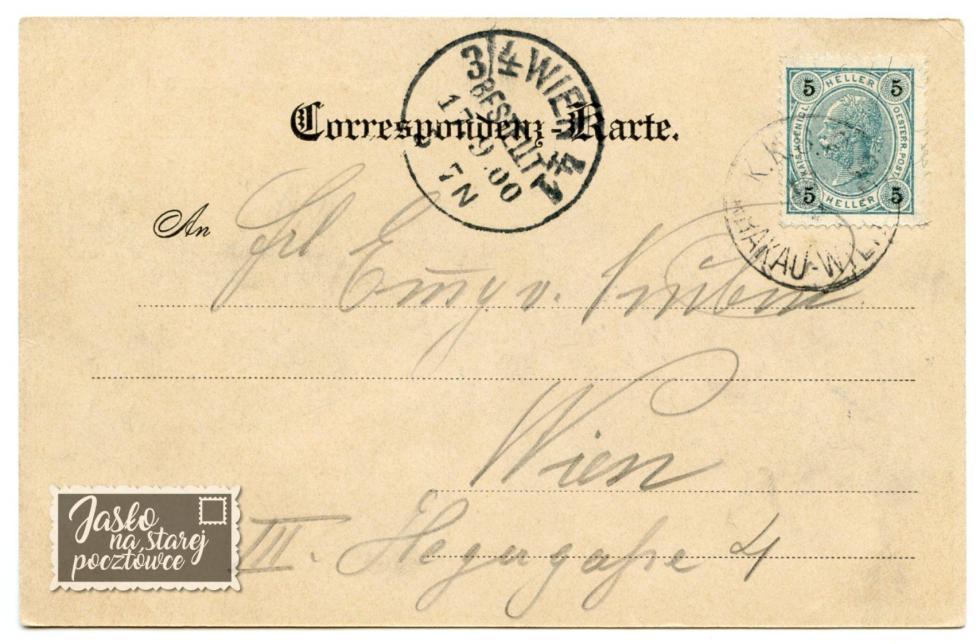 Correspondenz-Karte.
3/4 WIEN 41
BESTELLT
17.9.00
7 N
5 HELLER 5
KAIS. KOENIGL.
OESTERR. POST.
5 HELLER 5
K.K.
KRAKAU-WIEN
An Frl Emmy v.
Wien
III. Hegergasse 4
Jasło
na starej
pocztówce